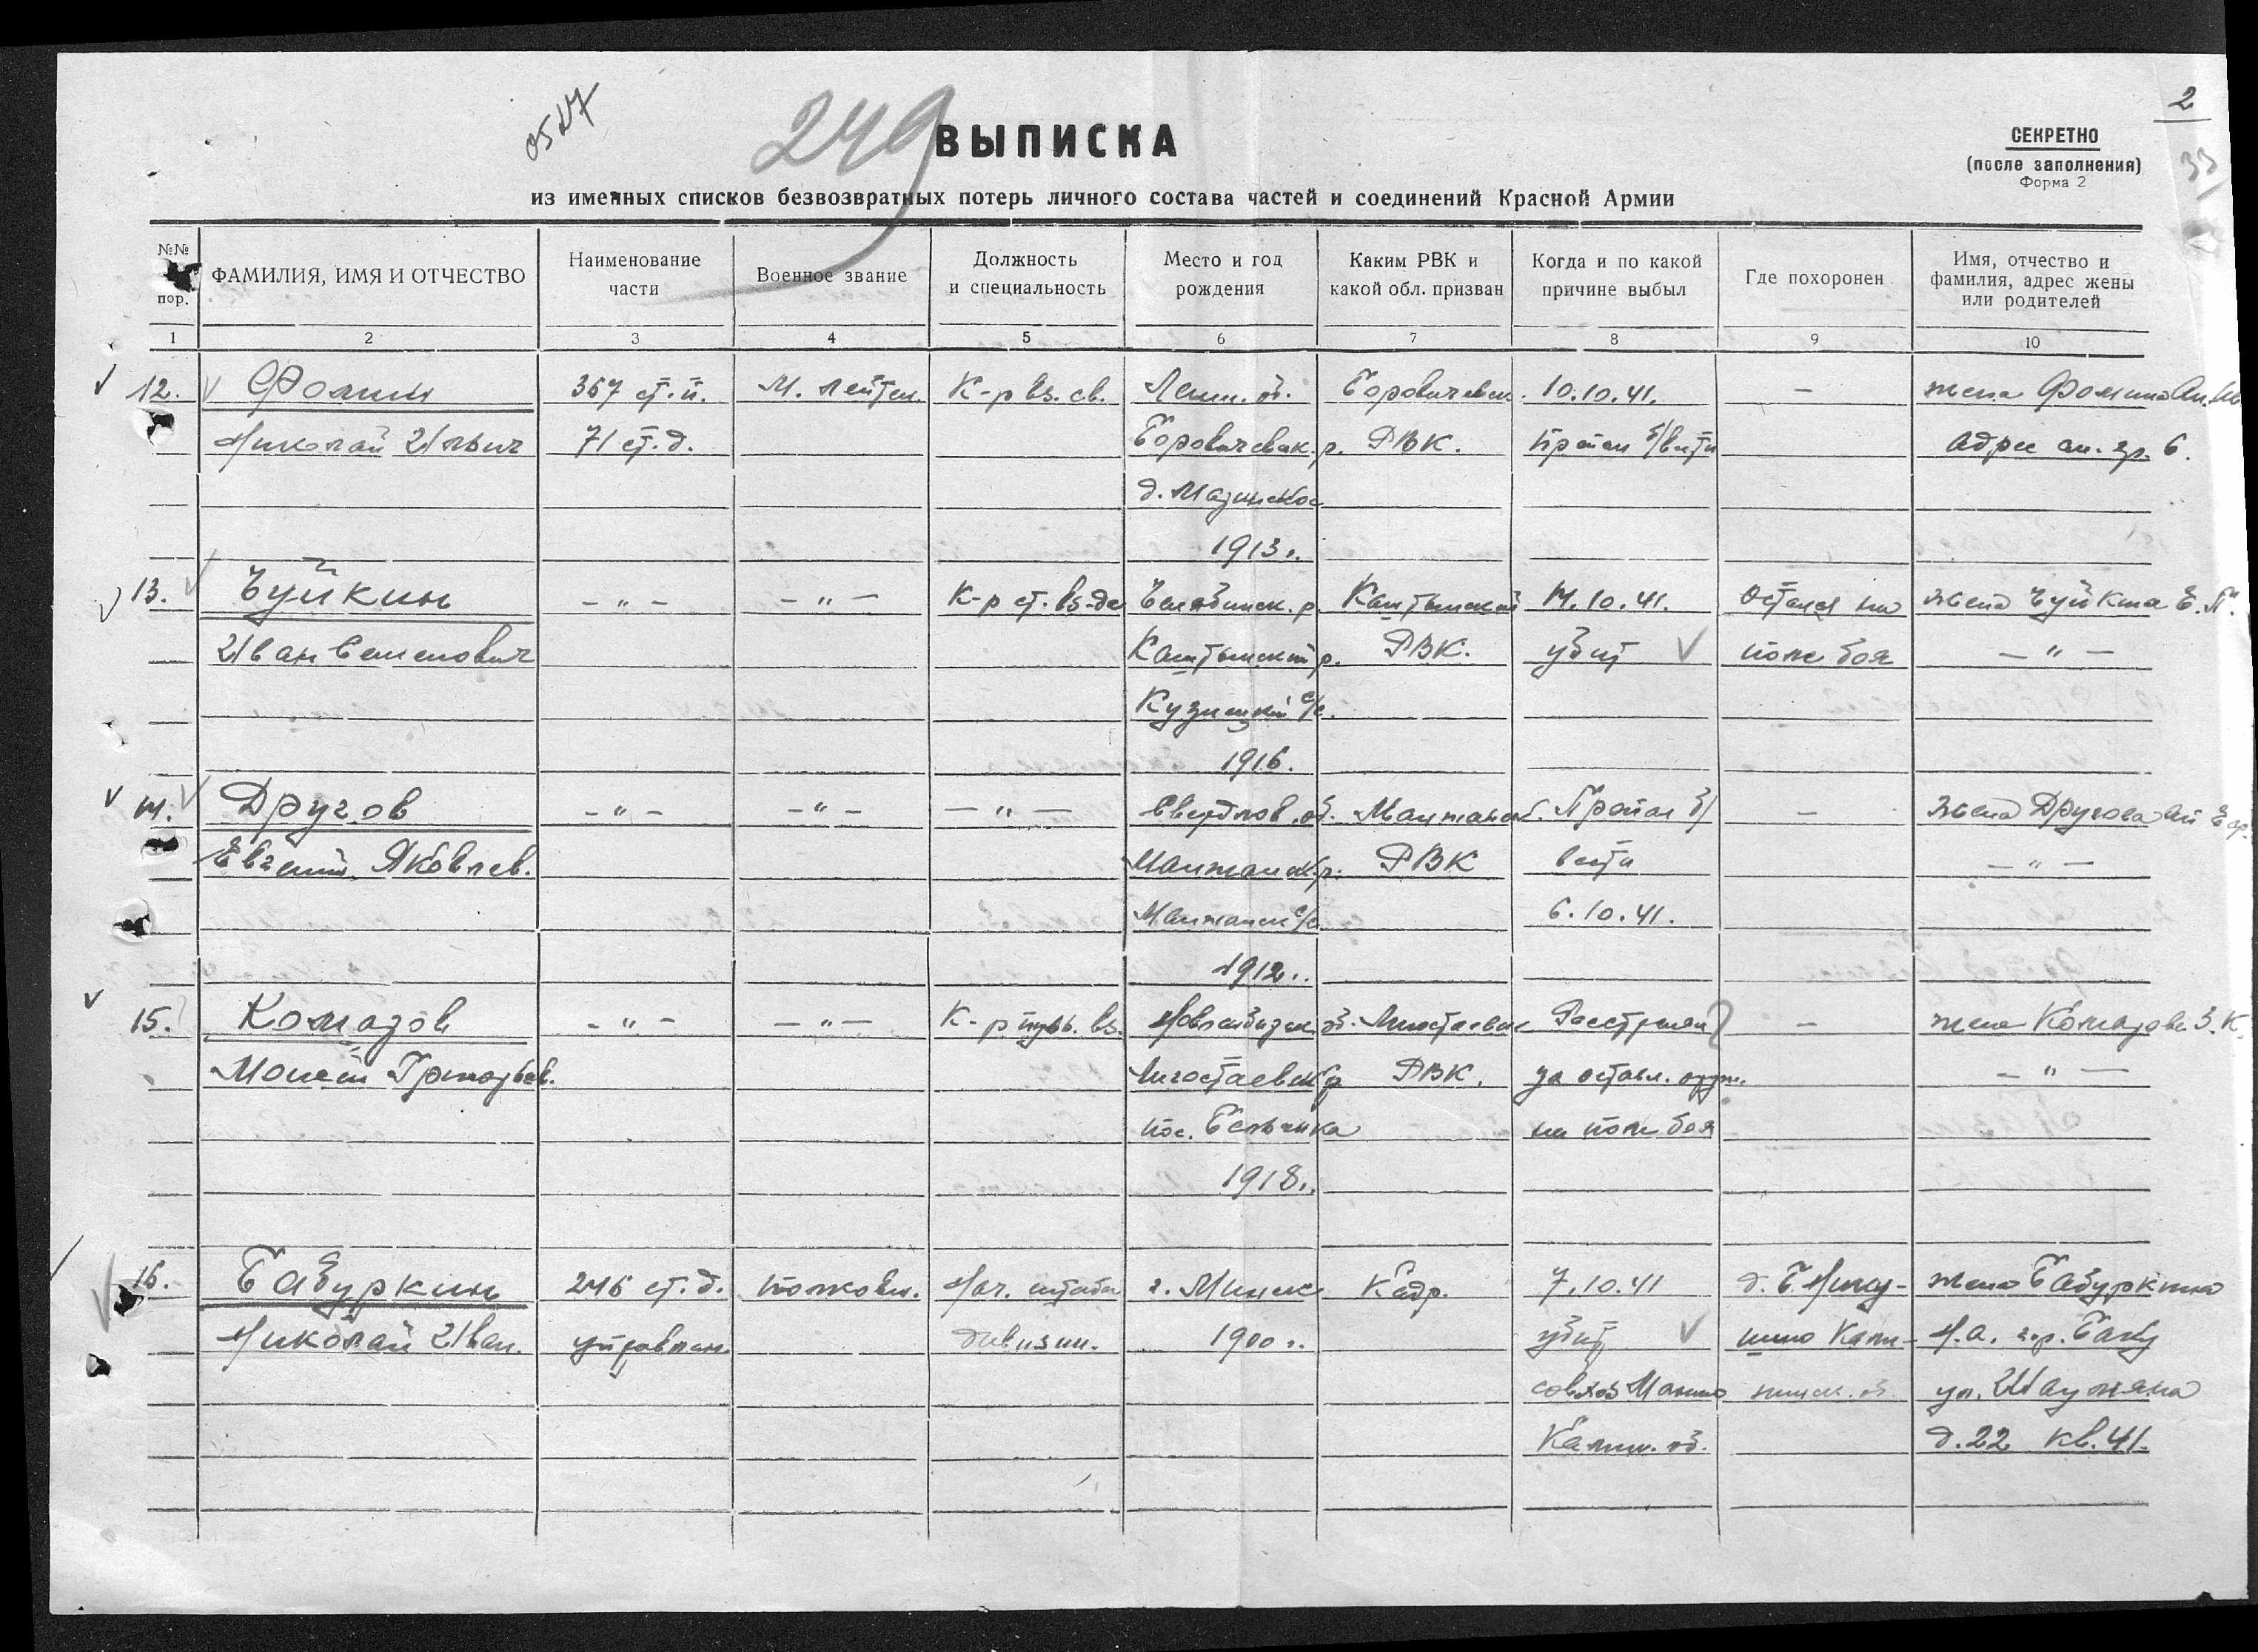 2
0527
249
ВЫПИСКА
СЕКРЕТНО
(после заполнения)
Форма 2
33
из именных списков безвозвратных потерь личного состава частей и соединений Красной Армии
№№ пор.
ФАМИЛИЯ, ИМЯ И ОТЧЕСТВО
Наименование части
Военное звание
Должность и специальность
Место и год рождения
Каким РВК и какой обл. призван
Когда и по какой причине выбыл
Где похоронен
Имя, отчество и фамилия, адрес жены или родителей
1 2 3 4 5 6 7 8 9 10
12. Фомин 367 ст. п. М. лейтен. К-р вз. св. Ленин. об. Боровичевск. 10.10.41. — жена Фомина
Николай Ильич 71 ст. д. Боровичевск. р. РВК. пропал б/вести адрес см. гр. 6.
д.
1913 г.
13. Чуйкин – " – – " – К-р ст. вз-да Челябинск. р. Кыштымский 14.10.41. Остался на жена Чуйкина Е. П.
Иван Семенович Кыштымский р. РВК. убит поле боя – " –
с/с.
1916.
14. Другов – " – – " – – " – Свердлов. об. Пропал б/ — жена Другова
Евгений Яковлев. РВК вести – " –
с/с. 6.10.41.
1912 г.
15. Комазов – " – – " – К-р пульв. вз. Новосибирск. об. Расстрелян — жена Комазова З. К.
Моисей Григорьев. р РВК. за оставл. оруж. – " –
пос. на поле боя
1918 г.
16. Бабуркин 246 ст. д. полковн. Нач. штаба г. Минск Кадр. 7.10.41 жена Бабуркина
Николай Иван. управлен. дивизии. 1900 г. убит Кали- Н. А. гор. Баку
совхоз нинск. об. ул. Шаумяна
Калин. об. д. 22 кв. 41.